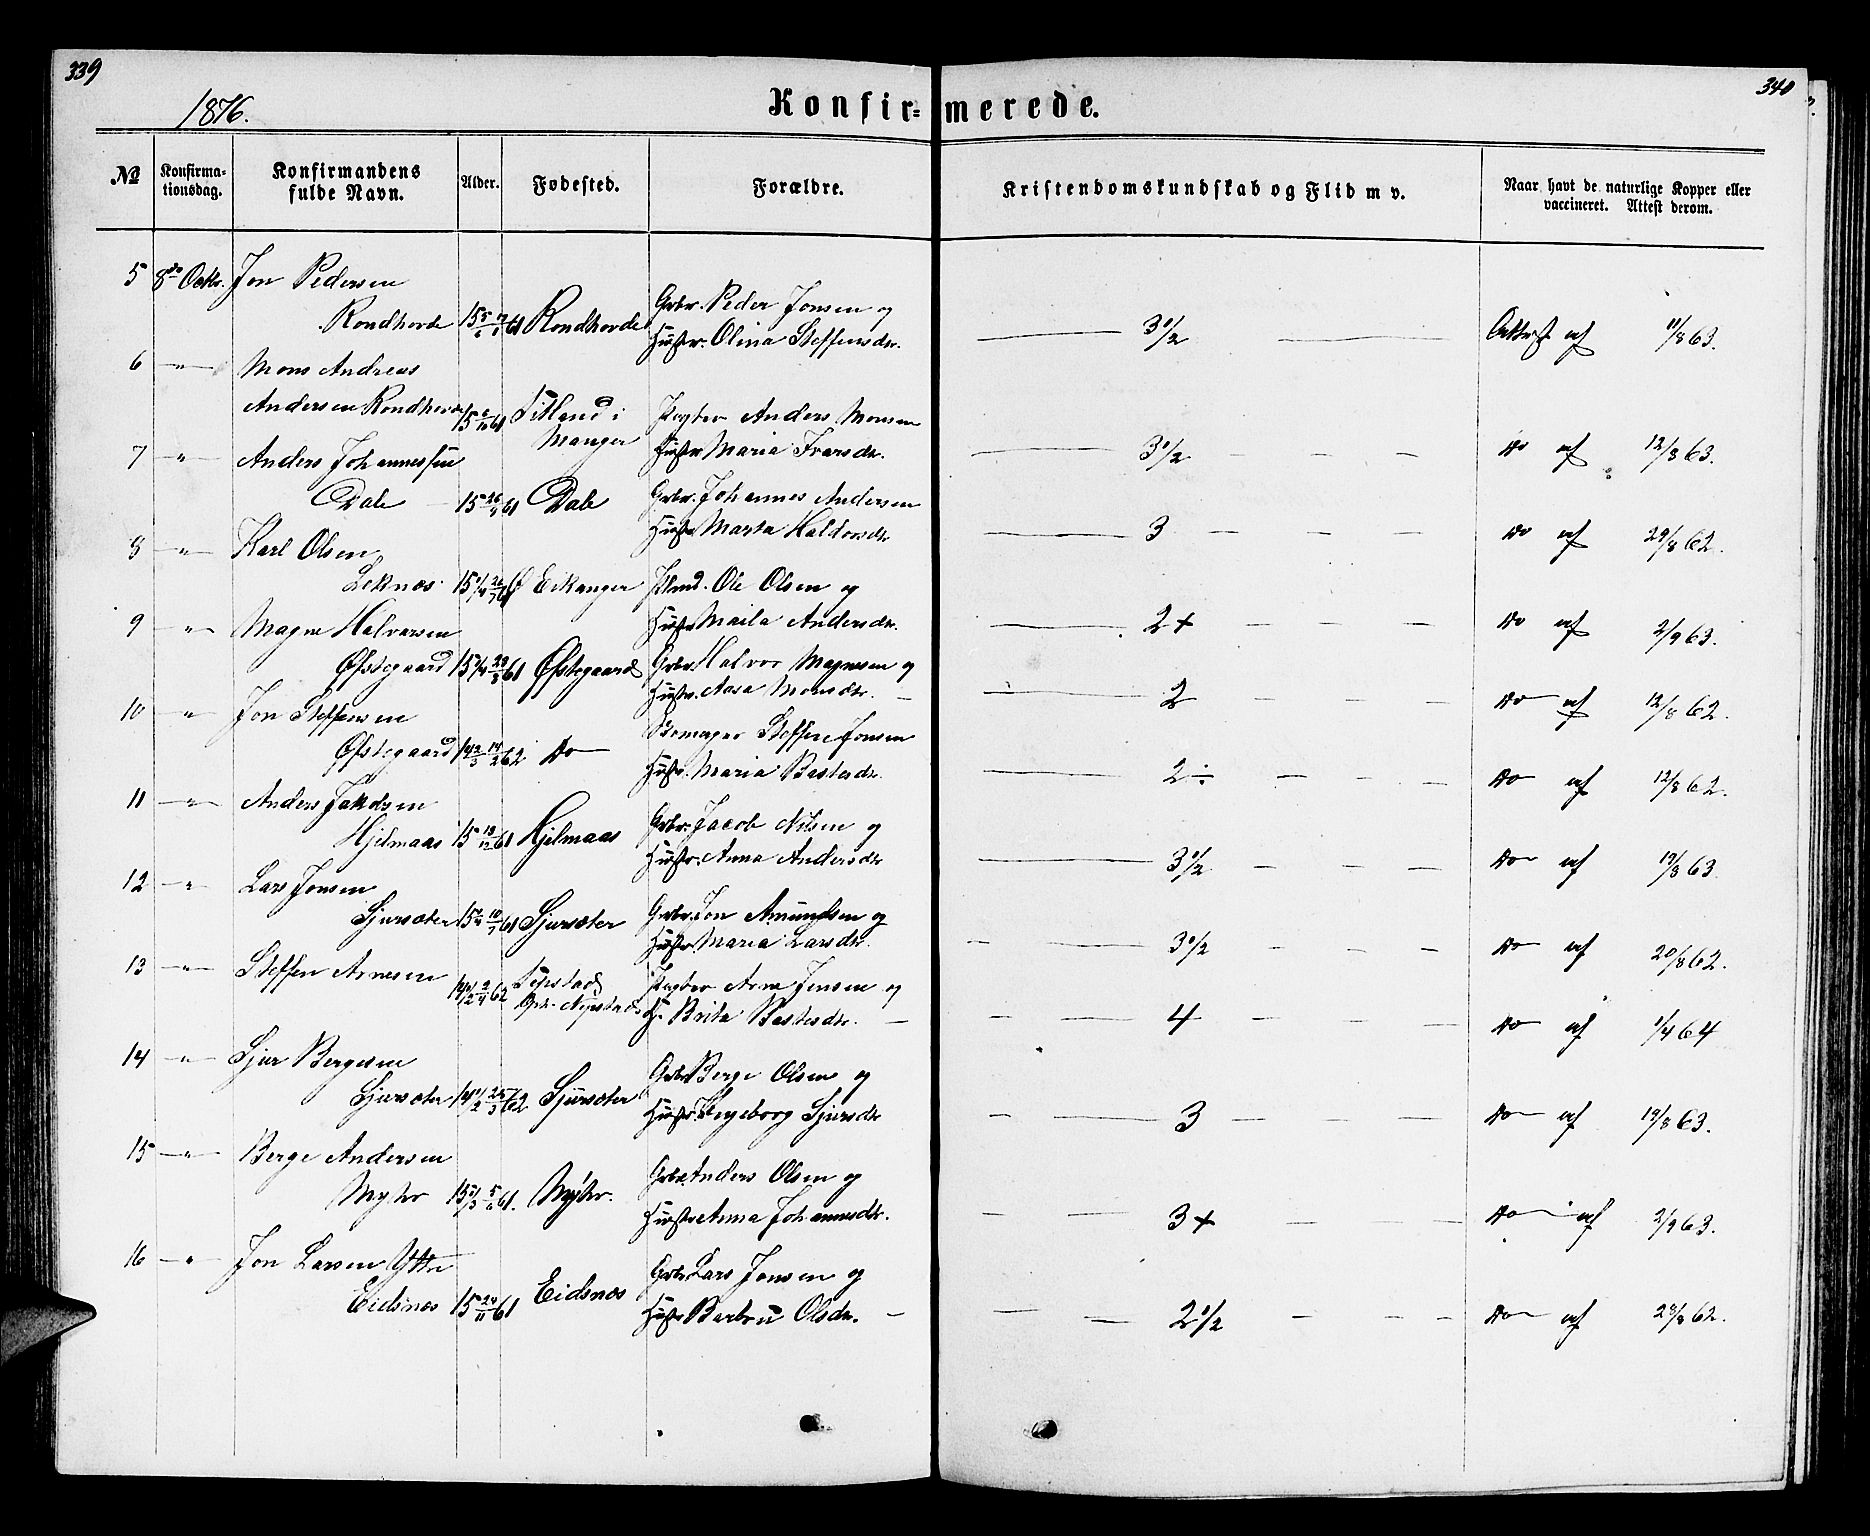 339
340
1876.
Konfir=merede.
№ Konfirma-tionsdag. Konfirmandens fulde Navn. Alder. Fødested. Forældre. Kristendomskundskab og Flid m v. Naar havt de naturlige Kopper eller vaccineret. Attest derom.
5 8de Octbr. Jon Pedersen
Rondhovde 15 61 Rondhovde Grbr. Peder Jonsen og
Hustr. Olina Steffensdr. 3½ Attest af 11/8 63.
6 -"- Mons Andreas
Andersen Rondhovde 15 61 Titland i Manger Pagtbr Anders Monsen
Hustr Maria Ivarsdr. 3½ Do af 12/8 63.
7 -"- Anders Johannessen
Dale 15 61 Dale Grbr. Johannes Andersen
Hustr Marta Haldorsdr 3 Do af 29/8 62.
8 -"- Karl Olsen
Leknes 15¼ Eikanger Plmd. Ole Olsen og
Hustr Anders­dr. 2+ Do af 2/9 63.
9 -"- Magne Halvorsen
Øfstegaard 15¼ 61 Øfstegaard Grbr. Halvor Magnesen og
Hustr. Aasa Monsdr. — 2 Do af 12/8 62.
10 -"- Jon Steffensen
Øfstegaard 14 62 Do Steffen Jonsen
Hustr. Maria Bastesdr. 2÷ Do af 12/8 62.
11 -"- Anders Jakobsen
Hjelmaas 15 61 Hjelmaas Grbr. Jacob Nilsen og
Hustr. Anna Andersdr 3½ Do af 19/8 63
12 -"- Lars Jonsen
Sjursæter 15 61 Sjursæter Grbr. Jon Amundsen og
Hustr Maria Larsdr. 3½ Do af 20/8 62.
13 -"- Steffen Arnesen
14½ 2/4 62 Pagtbr Arne Jensen og
H. Brita Bastesdr. — 4 Do af 1/4 64
14 -"- Sjur Bergesen
Sjursæter 14½ 25/3 62 Sjursæter Grbr Berge Olsen og
Hustr Ingeborg Sjursdr 3 Do af 19/8 63.
15 -"- Berge Andersen
Myhr 15⅓ 5/6 61. Myhr. Grbr. Anders Olsen og
Hustr Anna Johannesdr. 3+ Do af 2/9 63.
16 -"- Jon Larsen Yttre
Eidsnes 15 24/11 61 Eidsnes Grbr Lars Jonsen og
Hustr Barbru Olsdr. — 2½ Do af 28/8 62.